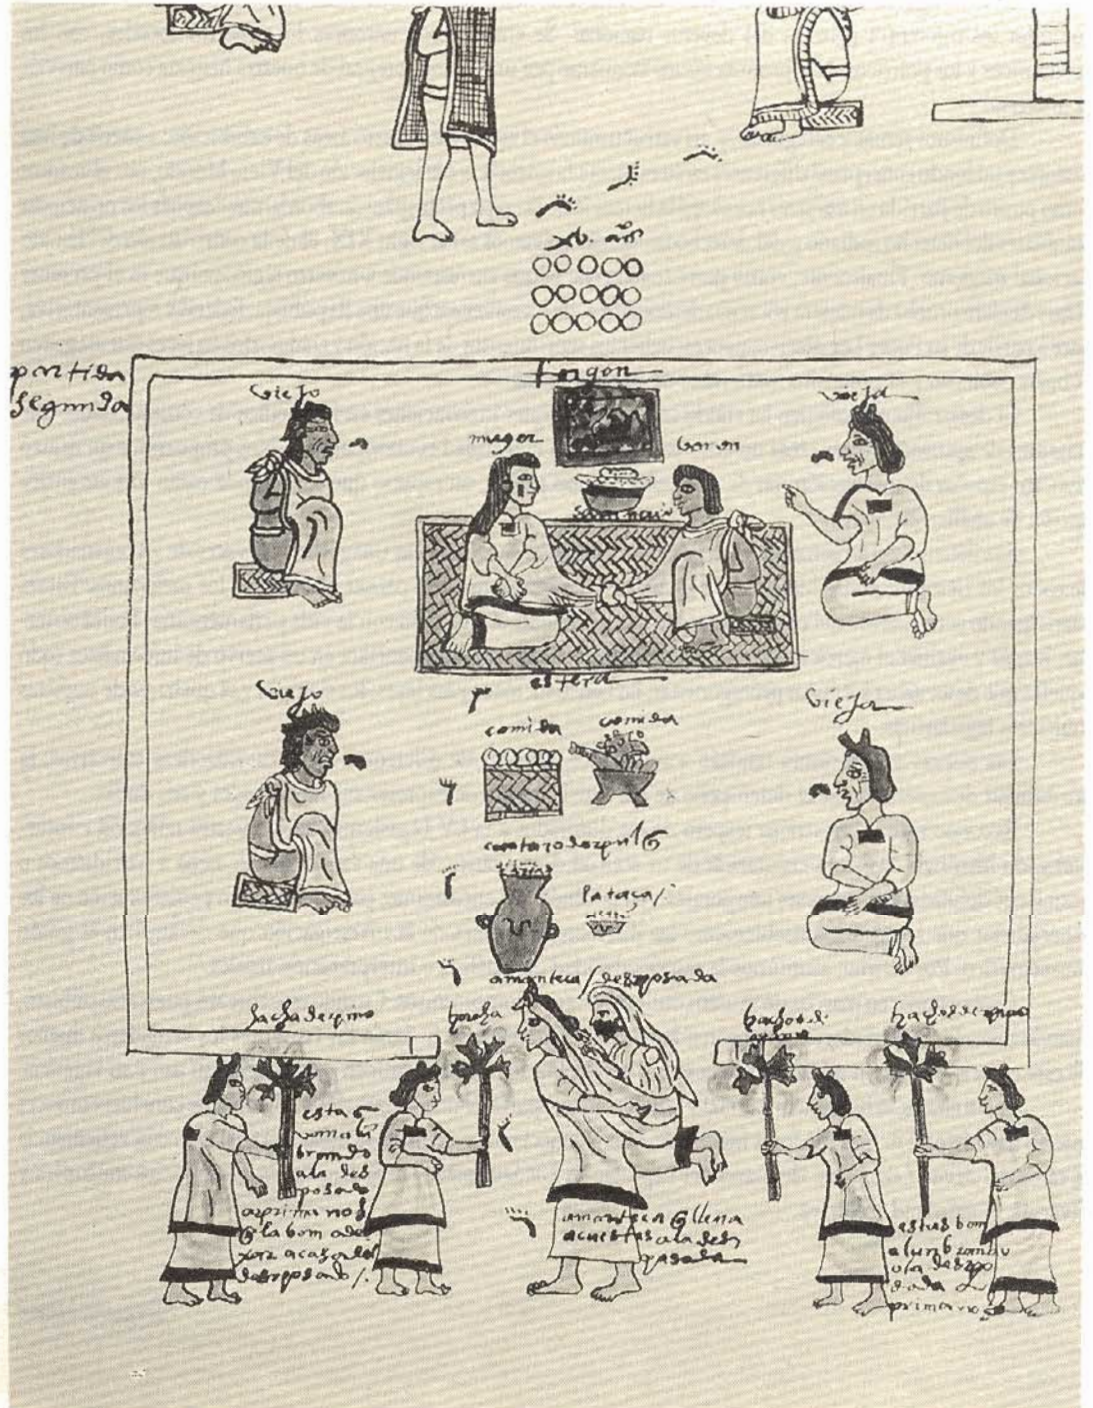 xv. años
partida
segunda
fogon
viejo
vieja
muger
baron
estera
viejo
vieja
comida
comida
cantaro de pul
la taça /
amanteca / desposada
hacha de pino
hacha
hachos de
hachos de pino
esta
van alū
brando
a la des
posada
a prima noch
la ban a de
xar a casa del
desposado /.
amanteca q̄ lleva
a cuestas a la des
posada
estas ban
alunbrando
a la despo
sada a
prima noch